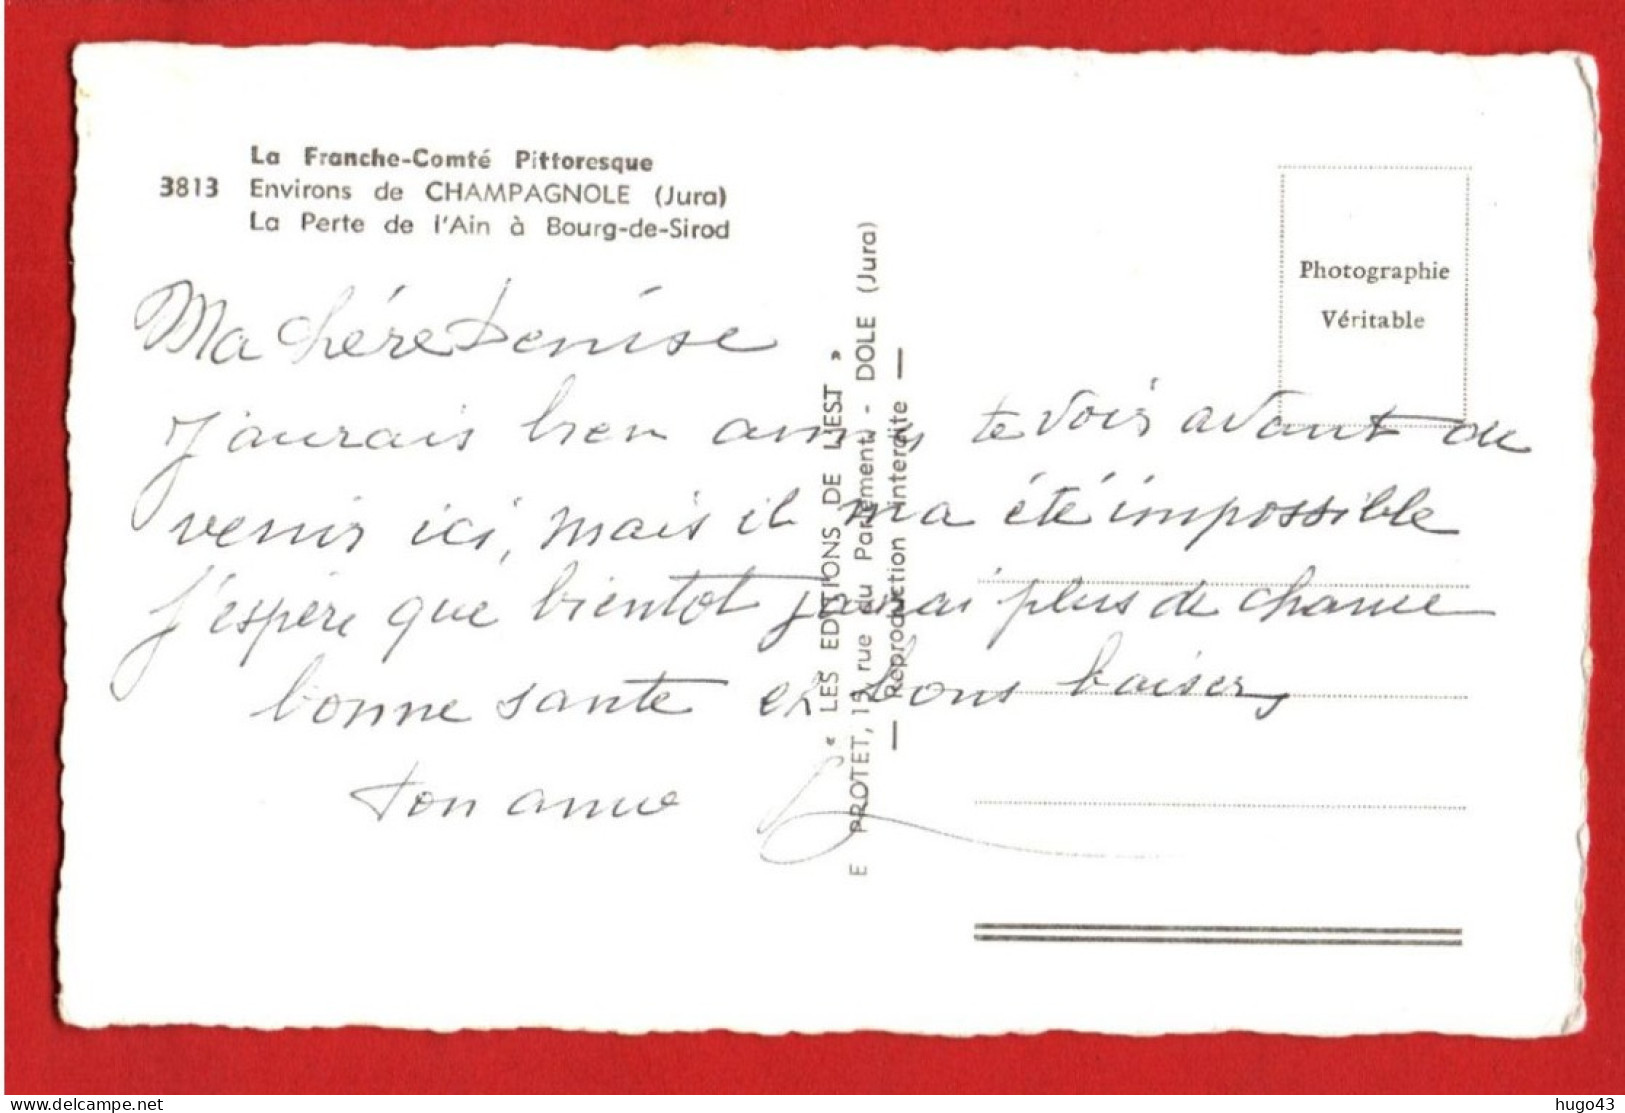 La Franche-Comté Pittoresque
3813 Environs de CHAMPAGNOLE (Jura)
La Perte de l'Ain à Bourg-de-Sirod
Photographie
Véritable
« LES EDITIONS DE L'EST »
E PROTET, 15, rue du Parlement - DOLE (Jura)
— Reproduction interdite —
Ma chére Denise
j'aurais bien aimé te voir avant de
venir ici, mais il m'a été impossible
j'espère que bientot j'aurai plus de chance
bonne sante et bons baisers
ton amie
hugo43